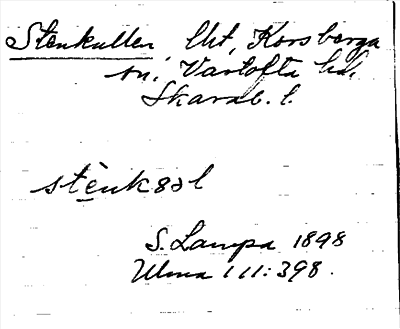 Stenkullen lht, Korsberga
sn, Vartofta hd,
Skarab. l.
stènkəəl
S. Lampa 1898
Ulma 111:398.